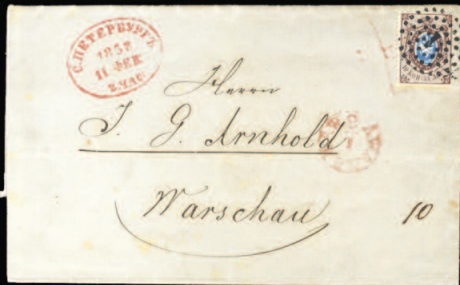 С.ПЕТЕРБУРГЪ
1858
11 ФЕВ
2.ЧАС.
Herrn
J. G. Arnhold
Warschau
10